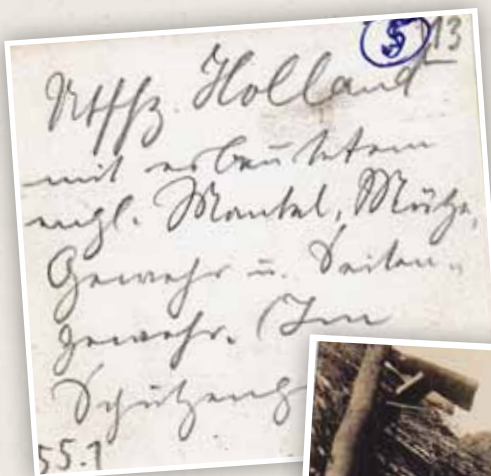 5 13
Utffz. Holland
mit erbeutetem
engl. Mantel, Mütze,
Gewehr u. Seiten-
gewehr. (Im
Schützeng
55.1